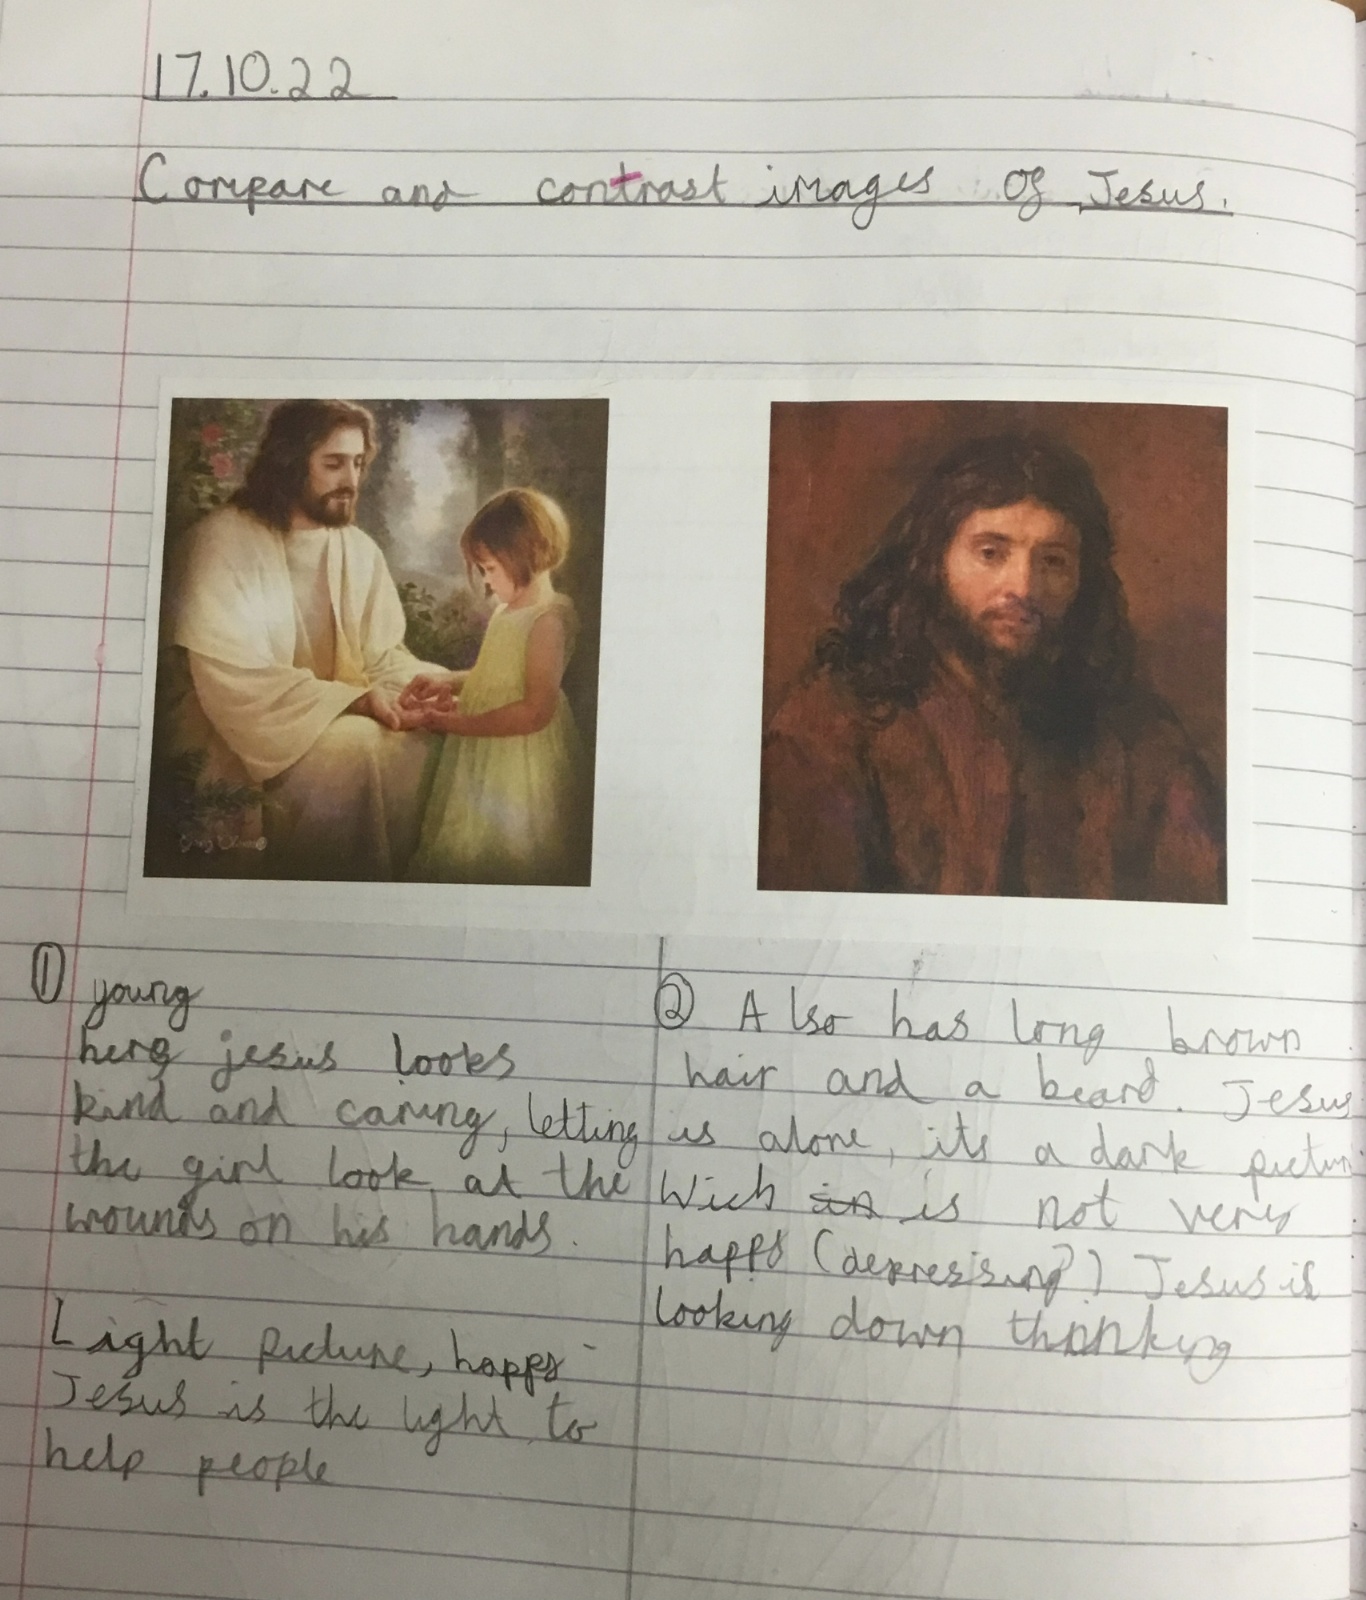 17.10.22
Compare and contrast images of Jesus.
Greg Olsen
① young
here jesus looks
kind and caring, letting
the girl look at the
wounds on his hands.
Light picture, happy
Jesus is the light to
help people
② Also has long brown
hair and a beard. Jesus
is alone, its a dark picture
Wich in is not very
happy (depressing?) Jesus is
looking down thinking